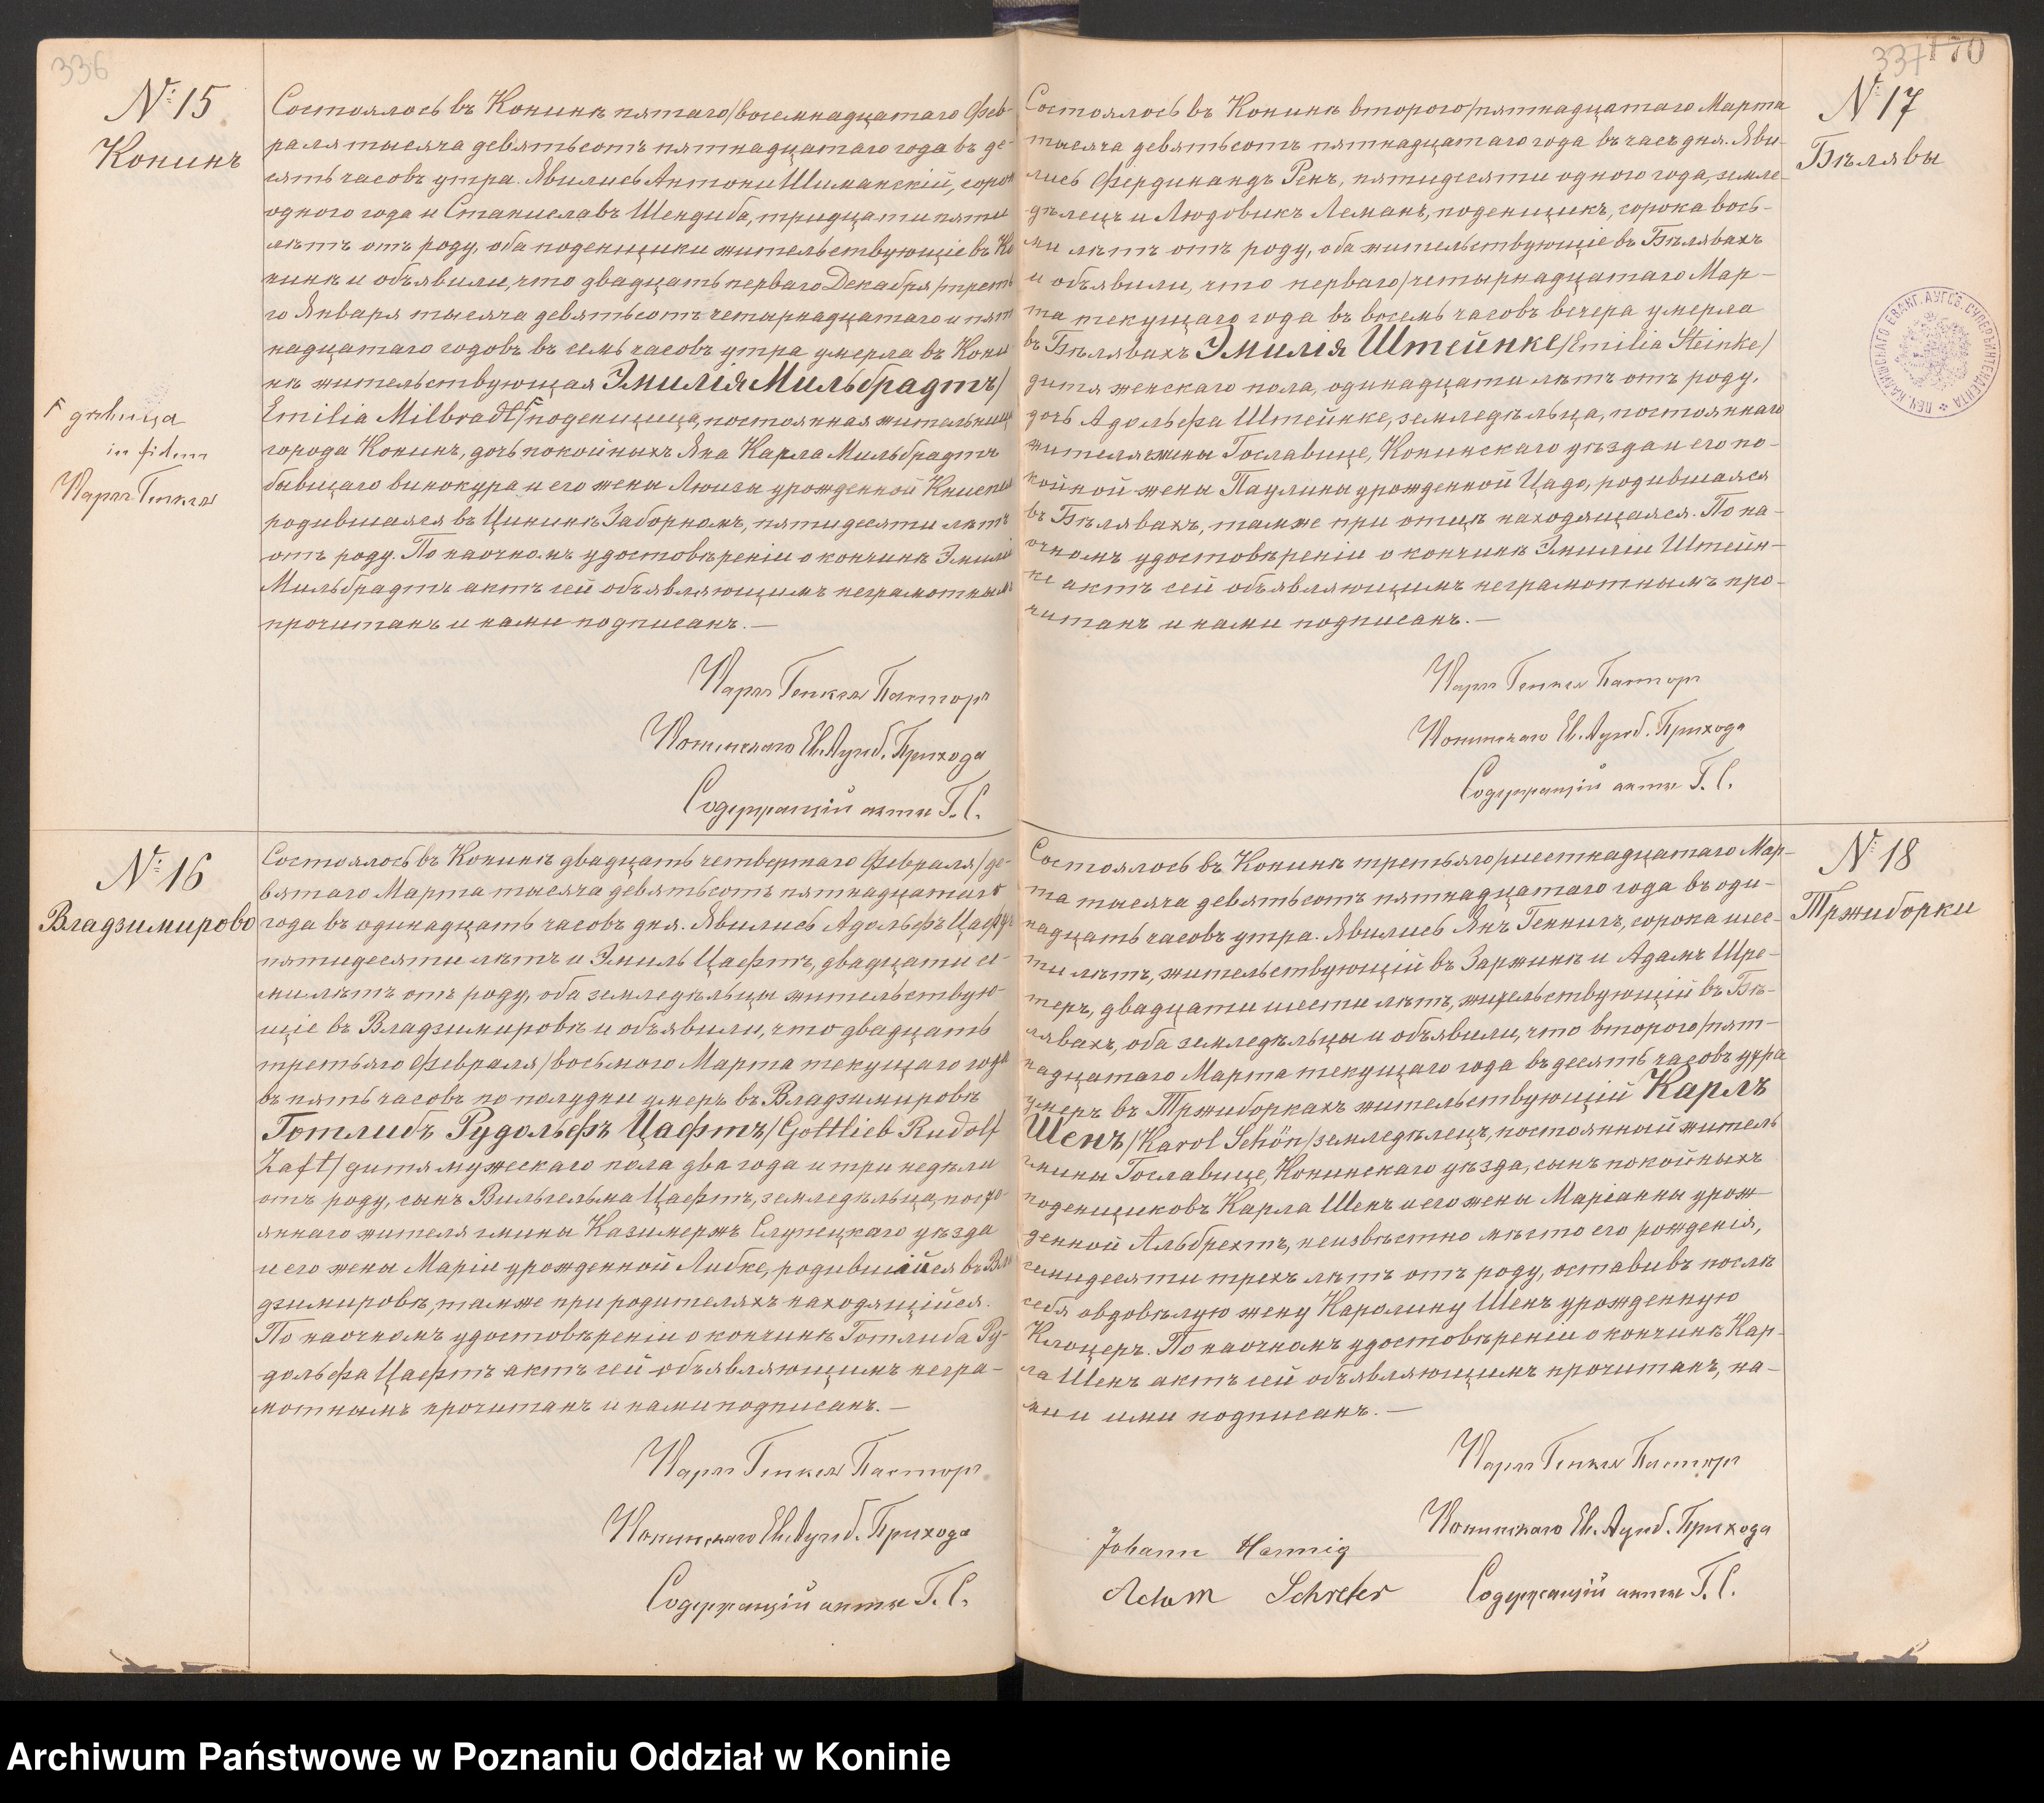 336
№ 15
Конинъ
Состоялось въ Конинѣ пятаго/восемнадцатаго Фев-
раля тысяча девятьсотъ пятнадцатаго года въ де-
сять часовъ утра. Явились Антони Шиманскій, сорок
одного года и Станиславъ Шендыба, тридцати пяти
лѣтъ отъ роду, оба поденщики жительствующіе въ Ко
нинѣ и объявили, что двадцать перваго Декабря/треть
го Января тысяча девятьсотъ четырнадцатаго и пят
надцатаго годовъ въ семь часовъ утра умерла въ Кони
нѣ жительствующая Эмилія Мильбрадтъ/
Emilia Milbradt/ ┌ поденщица, постоянная жительница
города Конинъ, дочь покойныхъ Яна Карла Мильбрадтъ
бывшаго винокура и его жены Люизы урожденной
родившаяся въ Цининѣ Заборномъ, пятидесяти лѣтъ
отъ роду. По наочномъ удостовѣреніи о кончинѣ Эмиліи
Мильбрадтъ актъ сей объявляющимъ неграмотнымъ
прочитанъ и нами подписанъ. —
┌ дѣвица
in fidem
Карлъ Генкель
Карлъ Генкель Пасторъ
Конинскаго Ев. Аугсб. Прихода
Содержащій акты Г. С.
№ 16
Владзимирово
Состоялось въ Конинѣ двадцать четвертаго Февраля/де-
вятаго Марта тысяча девятьсотъ пятнадцатаго
года въ одинадцать часовъ дня. Явились Адольфъ Цафтъ
пятидесяти лѣтъ и Эмиль Цафтъ, двадцати се-
ми лѣтъ отъ роду, оба земледѣльцы жительствую-
щіе въ Владзимировѣ и объявили, что двадцать
третьяго Февраля/восьмого Марта текущаго года
въ пять часовъ по полудни умеръ въ Владзимировѣ
Готлибъ Рудольфъ Цафтъ/Gottlieb Rudolf
Zaft/ дитя мужескаго пола два года и три недѣли
отъ роду, сынъ Вильгельма Цафтъ, земледѣльца, посто-
яннаго жителя гмины Казимержъ Слупецкаго уѣзда
и его жены Маріи урожденной Либке, родившійся въ Вла
дзимировѣ, тамже при родителяхъ находящійся.
По наочномъ удостовѣреніи о кончинѣ Готлиба Ру-
дольфа Цафтъ актъ сей объявляющимъ негра-
мотнымъ прочитанъ и нами подписанъ. —
Карлъ Генкель Пасторъ
Конинскаго Ев. Аугсб. Прихода
Содержащій акты Г. С.
337 170
№ 17
Бѣлявы
Состоялось въ Конинѣ второго/пятнадцатаго Марта
тысяча девятьсотъ пятнадцатаго года въ часъ дня. Яви-
лись Фердинандъ Ренъ, пятидесяти одного года, земле-
дѣлецъ и Людовикъ Леманъ, поденщикъ, сорока вось-
ми лѣтъ отъ роду, оба жительствующіе въ Бѣлявахъ
и объявили, что перваго/четырнадцатаго Мар-
та текущаго года въ восемь часовъ вечера умерла
въ Бѣлявахъ Эмилія Штейнке/Emilia Steinke/
дитя женскаго пола, одинадцати лѣтъ отъ роду,
дочь Адольфа Штейнке, земледѣльца, постояннаго
жителя гмины Гославице, Конинскаго уѣзда и его по-
койной жены Паулины урожденной Цадо, родившаяся
въ Бѣлявахъ, тамже при отцѣ находящаяся. По на-
очномъ удостовѣреніи о кончинѣ Эмиліи Штейн-
ке актъ сей объявляющимъ неграмотнымъ про-
читанъ и нами подписанъ. —
Карлъ Генкель Пасторъ
Конинскаго Ев. Аугсб. Прихода
Содержащій акты Г. С.
ПЕЧ. КАЛИШСКАГО ЕВАНГ. АУГСБ. СУПЕРЪИНТЕНДЕНТА
№ 18
Тржиборки
Состоялось въ Конинѣ третьяго/шестнадцатаго Мар-
та тысяча девятьсотъ пятнадцатаго года въ оди-
надцать часовъ утра. Явились Янъ Геннигъ, сорока шес-
ти лѣтъ, жительствующій въ Заржинѣ и Адамъ Шре-
теръ, двадцати шести лѣтъ, жительствующій въ Бѣ-
лявахъ, оба земледѣльцы и объявили, что второго/пят-
надцатаго Марта текущаго года въ десять часовъ утра
умеръ въ Тржиборкахъ жительствующій Карлъ
Шенъ/Karol Schön/ земледѣлецъ, постоянный житель
гмины Гославице, Конинскаго уѣзда, сынъ покойныхъ
поденщиковъ Карла Шенъ и его жены Маріанны урож
денной Альбрехтъ, неизвѣстно мѣсто его рожденія,
семидесяти трехъ лѣтъ отъ роду, оставивъ послѣ
себя овдовѣлую жену Каролину Шенъ урожденную
Клоцеръ. По наочномъ удостовѣреніи о кончинѣ Кар-
ла Шенъ актъ сей объявляющимъ прочитанъ, на-
ми и ими подписанъ. —
Карлъ Генкель Пасторъ
Конинскаго Ев. Аугсб. Прихода
Johann Hennig
Adam Schreter
Содержащій акты Г. С.
Archiwum Państwowe w Poznaniu Oddział w Koninie